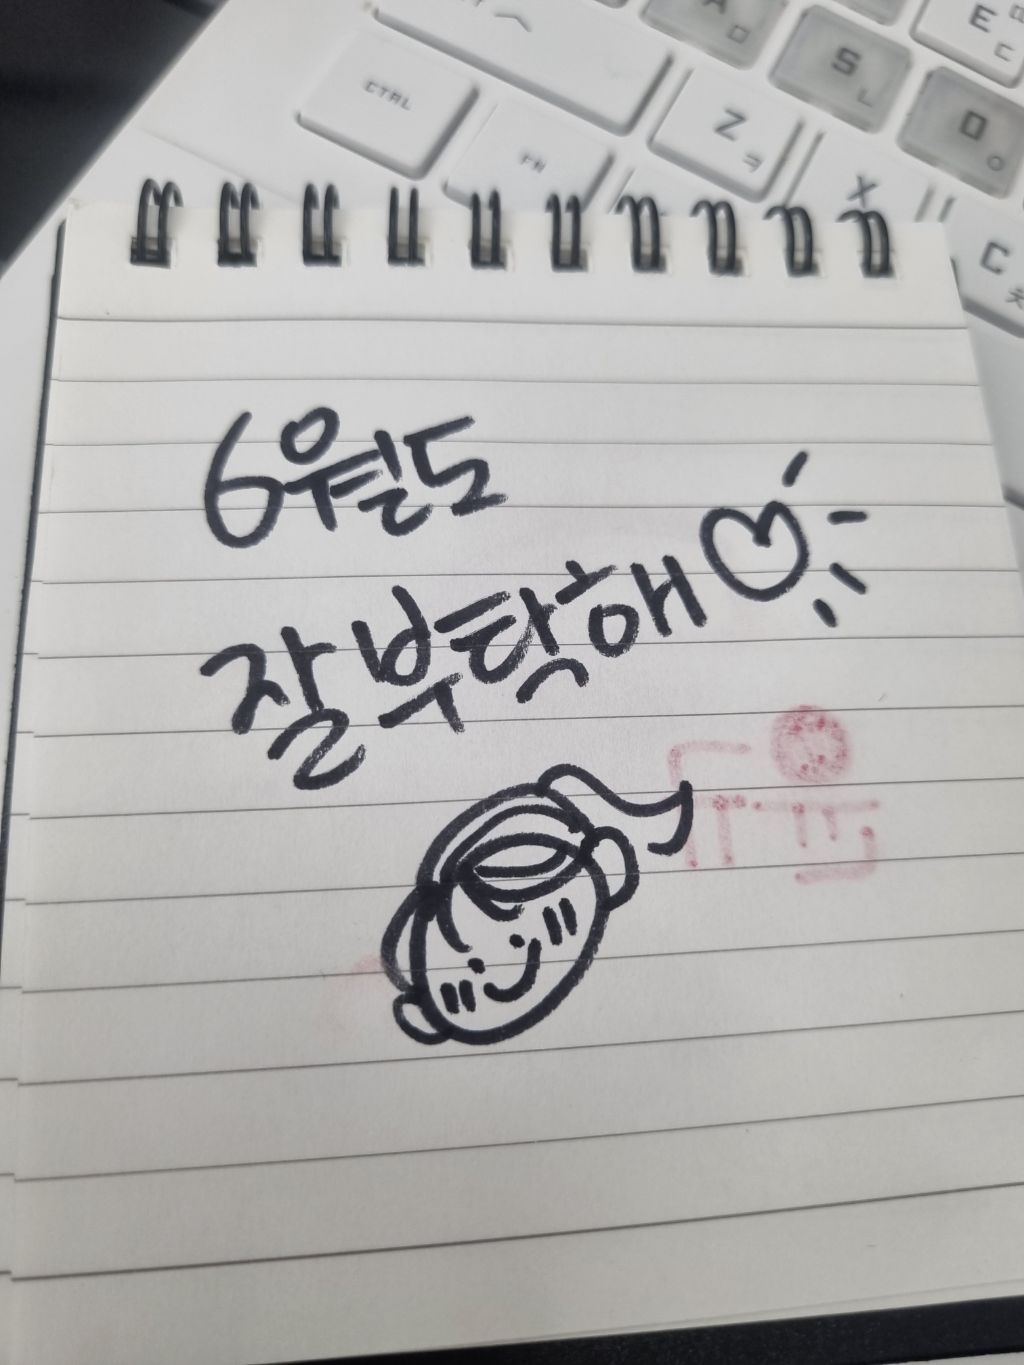 CTRL
Z ㅋ
A ㅁ
S ㄴ
D ㅇ
E ㄷ
X
C ㅊ
6월도
잘부탁해